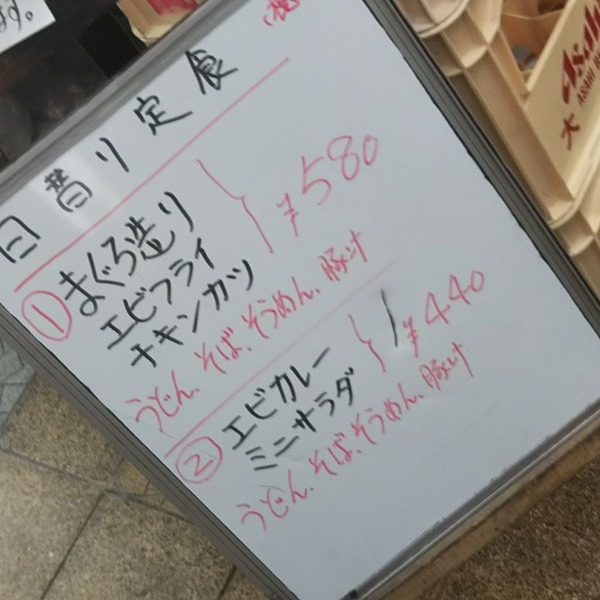 ます。
日替り定食
① まぐろ造り
エビフライ
チキンカツ
¥580
うどん、そば、そうめん、豚汁
② エビカレー
ミニサラダ
¥440
うどん、そば、そうめん、豚汁
Asahi
ASAHI
大